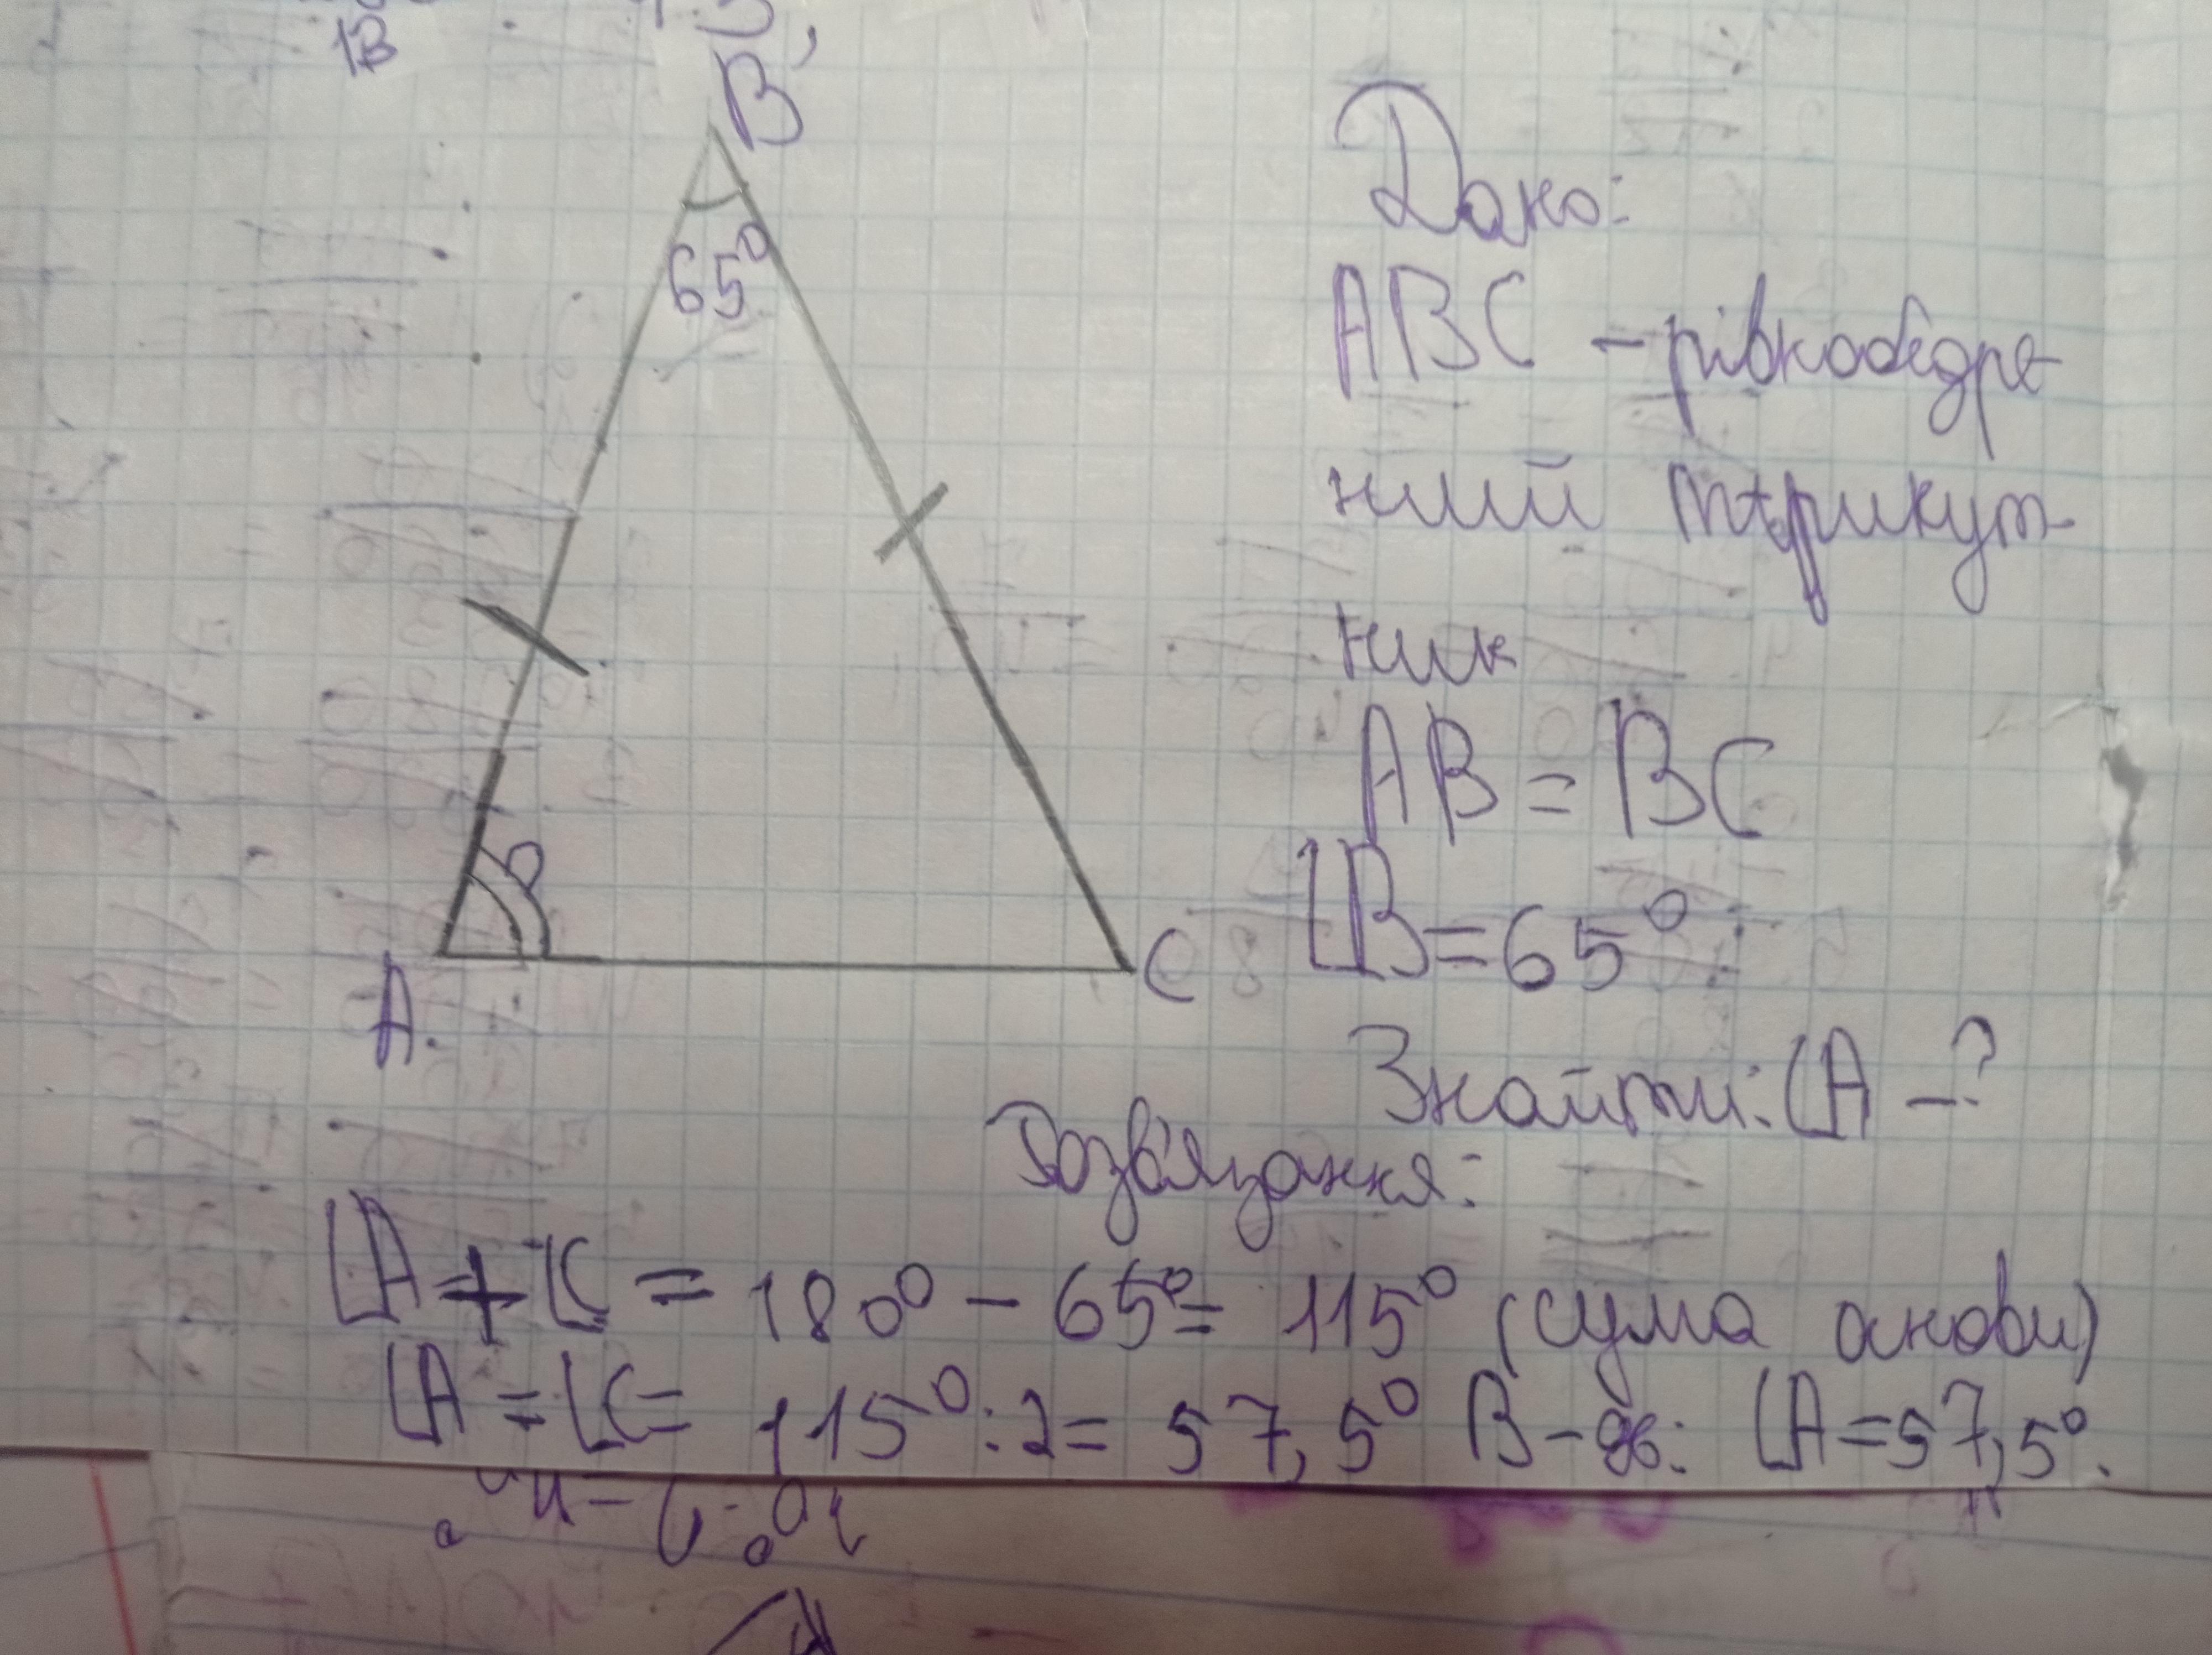 B
65°
A.
C
Дано:
ABC - рівнобедре-
ний трикут-
ник
AB = BC
∠B = 65°
Знайти: ∠A - ?
Розв'язання:
∠A + ∠C = 180° - 65° = 115° (сума
∠A = ∠C = 115° : 2 = 57,5° В-дь: ∠A = 57,5°.